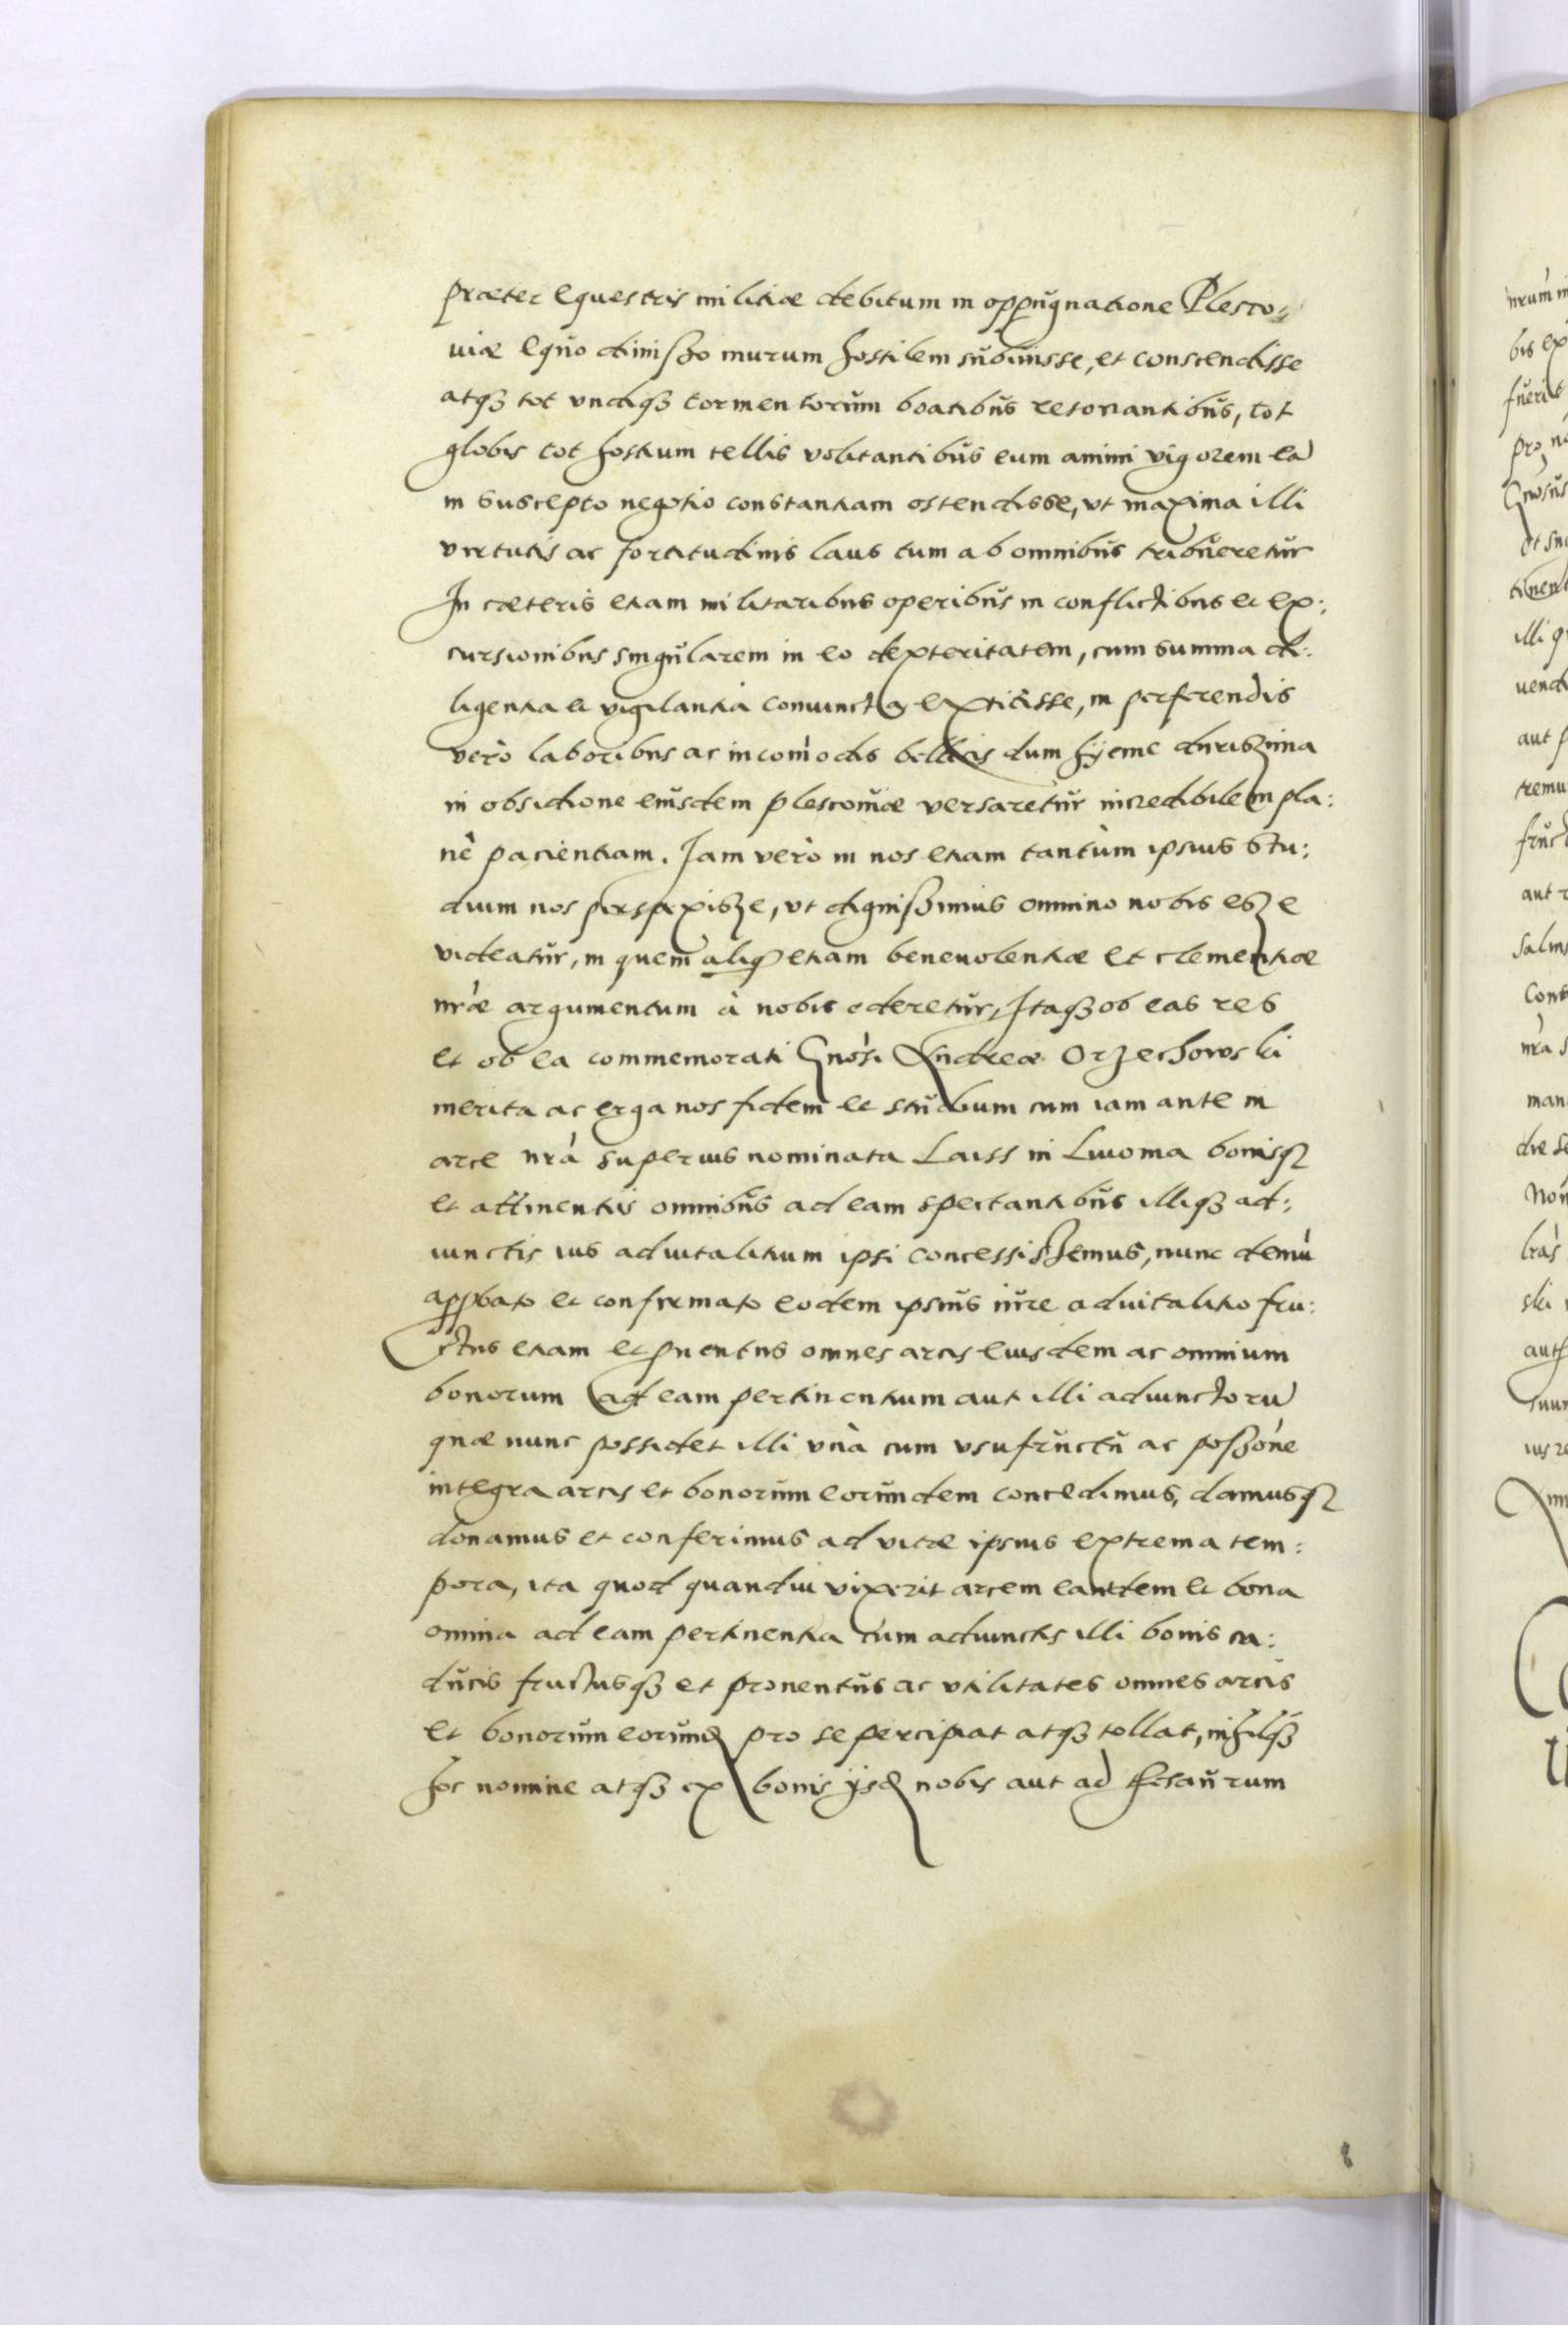 præter equestris militiæ debitum in oppugnatione Plesco:
uiæ equo dimisso murum hostilem subiuisse, et conscendisse
atq3 tot vndiq3 tormentorum boatibus resonantibus, tot
globis tot hostium tellis volitantibus eum animi vigorem eā
in suscepto negotio constantiam ostendisse, vt maxima illi
virtutis ac fortitudinis laus tum ab omnibus tribueretur
In cæteris etiam militaribus operibus in conflictibus et ex:
cursionibus singularem in eo dexteritatem, cum summa di:
ligentia et vigilantia coniunctā extitisse, in perferendis
verò laboribus ac incomodis bellicis dum hyeme durissima
in obsidione eiusdem plescouiæ versaretur incredibilem pla:
nè pacientiam. Iam verò in nos etiam tantùm ipsius stu:
dium nos perspexisse, vt dignissimus omnino nobis esse
videatur, in quem aliqd etiam beneuolentiæ et clementiæ
nræ argumentum à nobis ederetur, Itaq3 ob eas res
et ob ea commemorati Gnosi Andreæ Orzechowski
merita ac erga nos fidem et studium cum iam ante in
arce nrà superius nominata Laiss in Liuonia bonisq3
et attinentiis omnibus ad eam spectantibus illiq3 ad:
iunctis ius aduitalitium ipsi concessissemus, nunc demū
appbato et confirmato eodem ipsius iure aduitalitio fru:
ctus etiam et puentus omnes arcis eiusdem ac omnium
bonorum ad eam pertinentium aut illi adiunctorū
quæ nunc possidet illi vnà cum vsufructu ac possone
integra arcis et bonorum eorumdem concedimus, damusq3
donamus et conferimus ad vitæ ipsius extrema tem:
pora, ita quod quandiu vixerit arcem eandem et bona
omnia ad eam pertinentia cum adiunctis illi bonis ca:
ducis fructusq3 et prouentus ac vtilitates omnes arcis
et bonorum eorumd pro se percipiat atq3 tollat, nihilq3
hoc nomine atq3 ex bonis ijsd nobis aut ad thesaurum
8